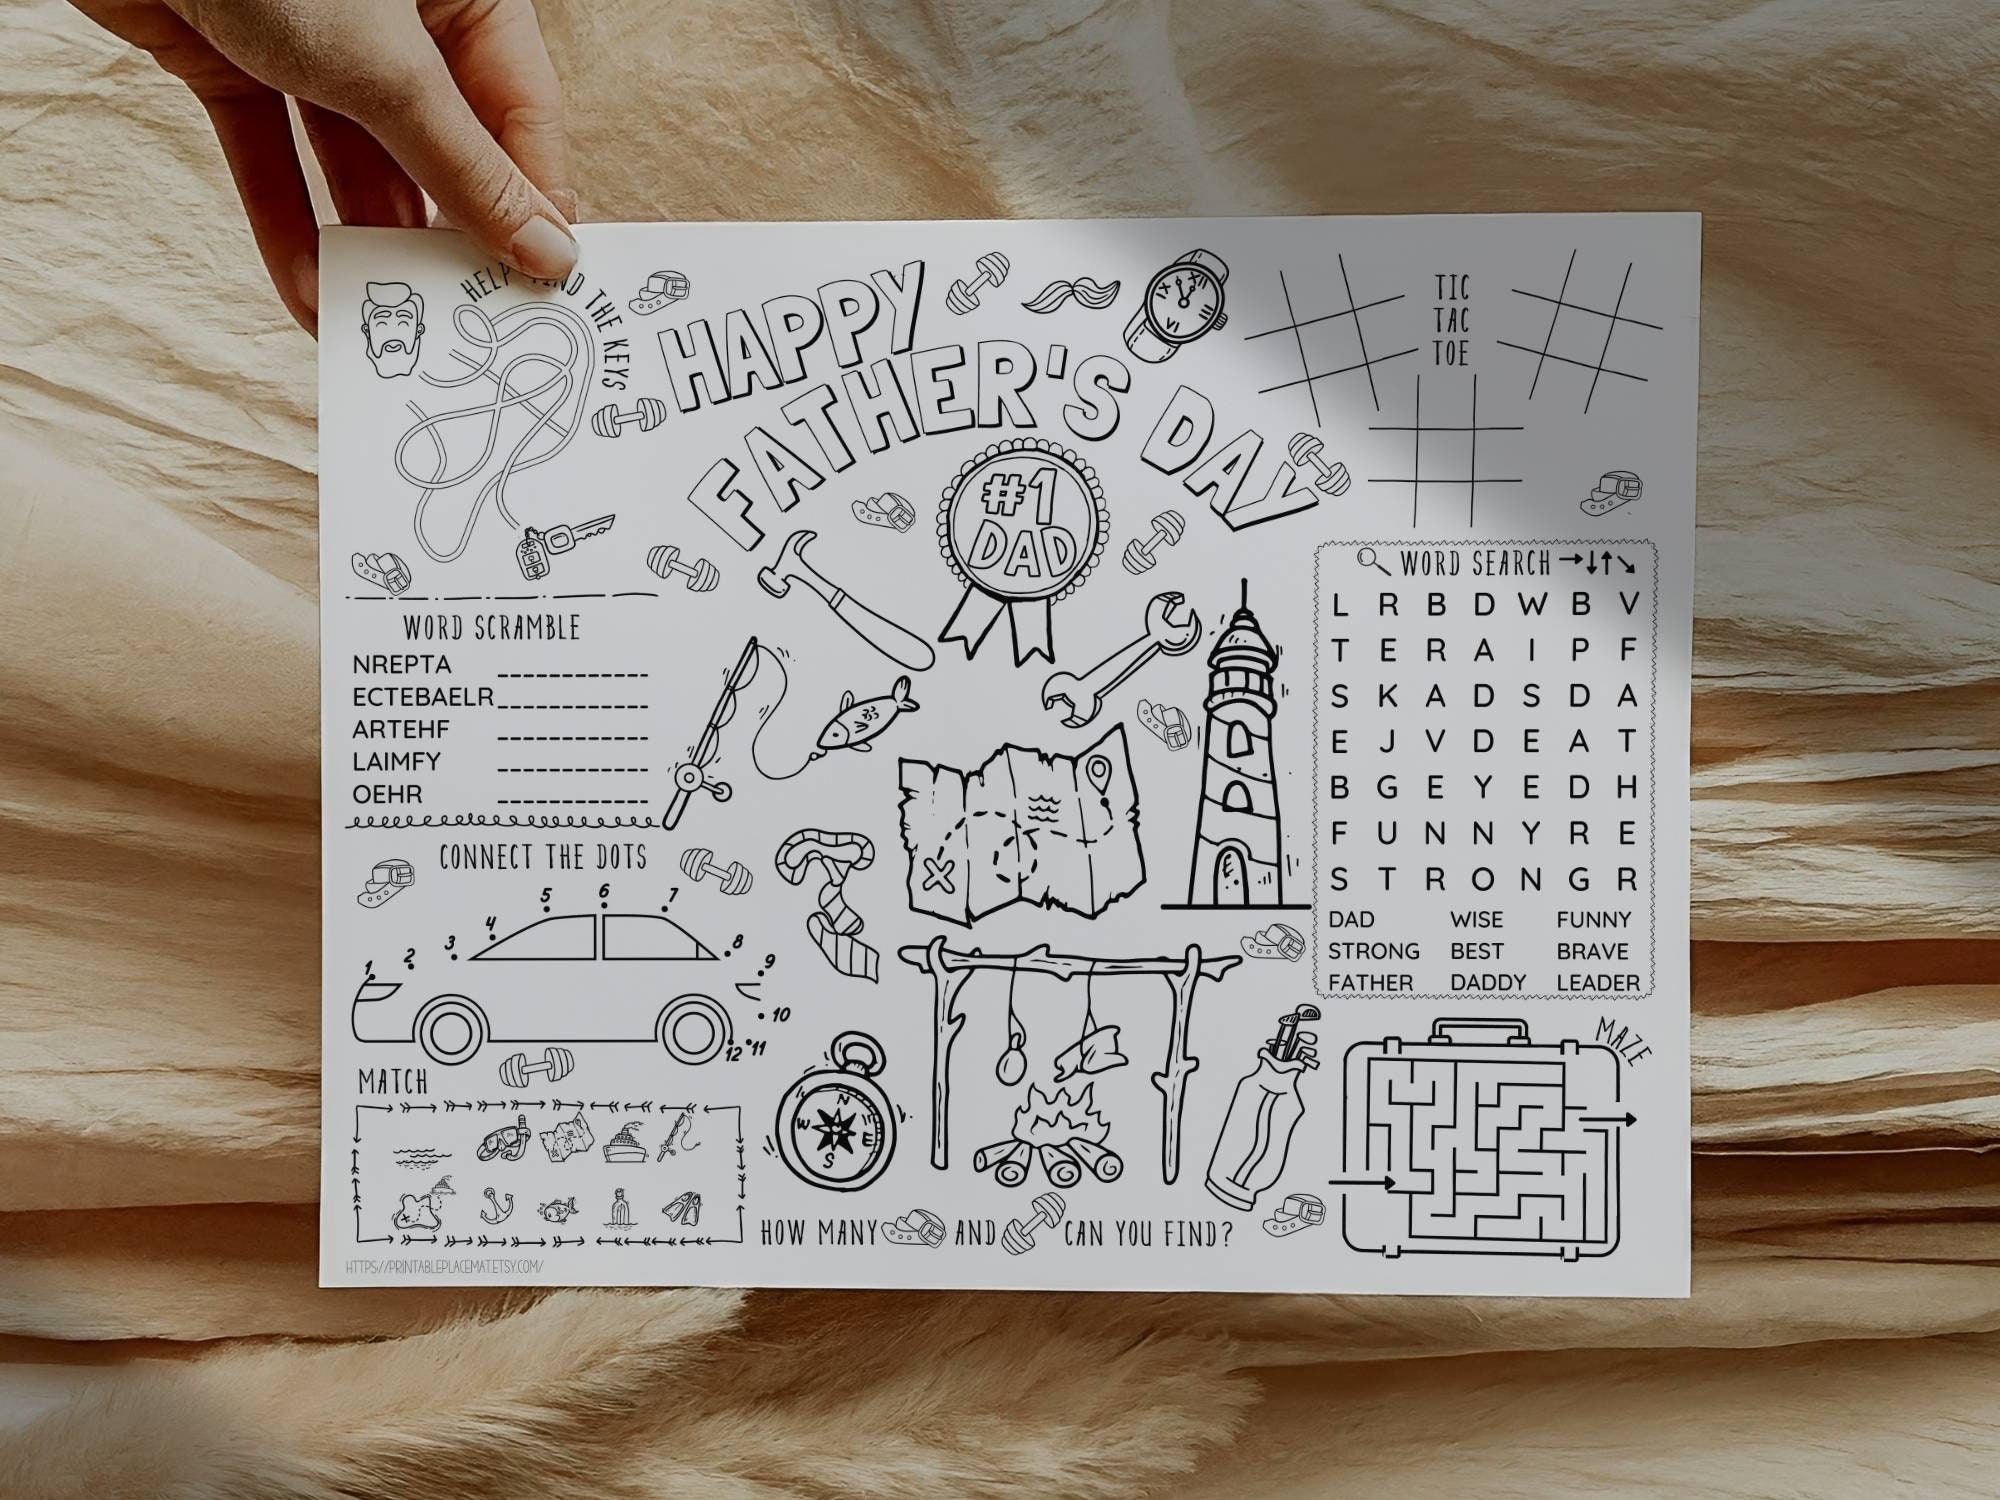 HELP FIND THE KEYS
HAPPY
FATHER'S DAY
#1
DAD
XII
III
VI
IX
TIC
TAC
TOE
WORD SCRAMBLE
NREPTA
ECTEBAELR
ARTEHF
LAIMFY
OEHR
WORD SEARCH
L R B D W B V
T E R A I P F
S K A D S D A
E J V D E A T
B G E Y E D H
F U N N Y R E
S T R O N G R
DAD WISE FUNNY
STRONG BEST BRAVE
FATHER DADDY LEADER
CONNECT THE DOTS
1 2 3 4 5 6 7 8 9 10 11 12
MATCH
N
W E
S
MAZE
HOW MANY AND CAN YOU FIND?
HTTPS://PRINTABLEPLACEMAT.ETSY.COM/